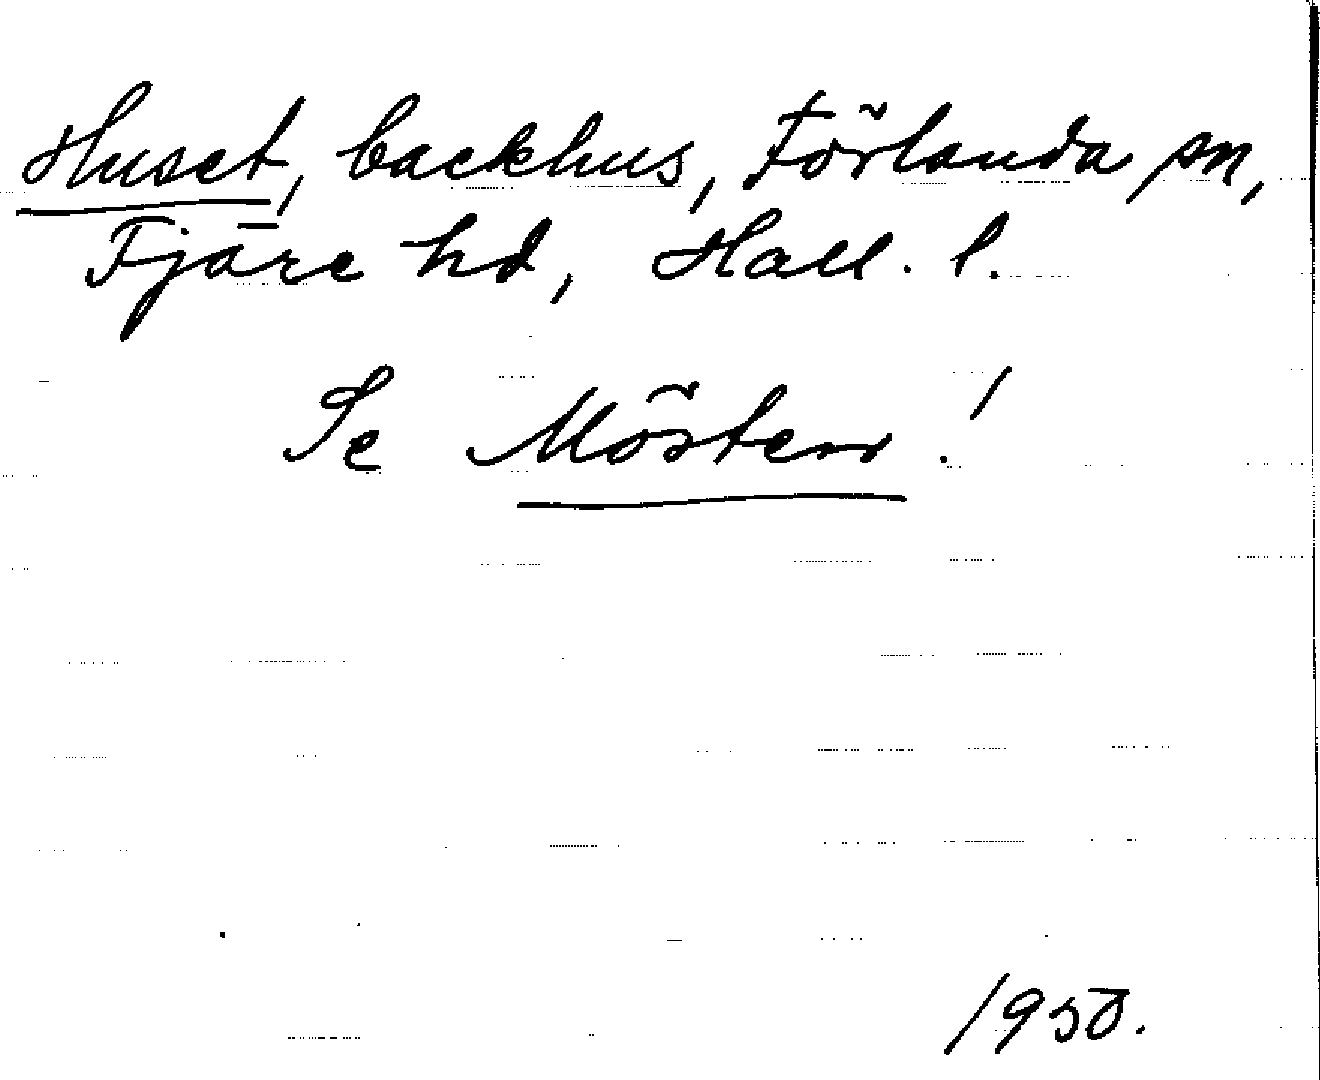 Huset, backhus, Förlanda sn,
Fjäre hd, Hall. l.
Se Mösten!
1950.